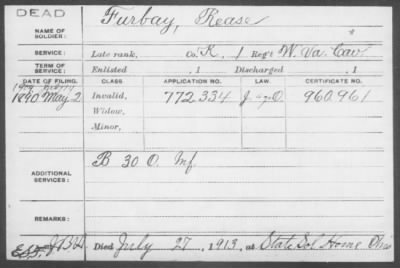 DEAD
NAME OF SOLDIER: Furbay, Rease
SERVICE: Late rank, Co. K, 1 Reg't W. Va. Cav
TERM OF SERVICE: Enlisted , 1 Discharged , 1
DATE OF FILING. CLASS APPLICATION NO. LAW. CERTIFICATE NO.
1890 May 2 Invalid, 772.334 960.961
Widow,
Minor,
ADDITIONAL SERVICES: B 30 O. Inf
REMARKS:
Died July 27, 1913, at State Sol Home Ohio